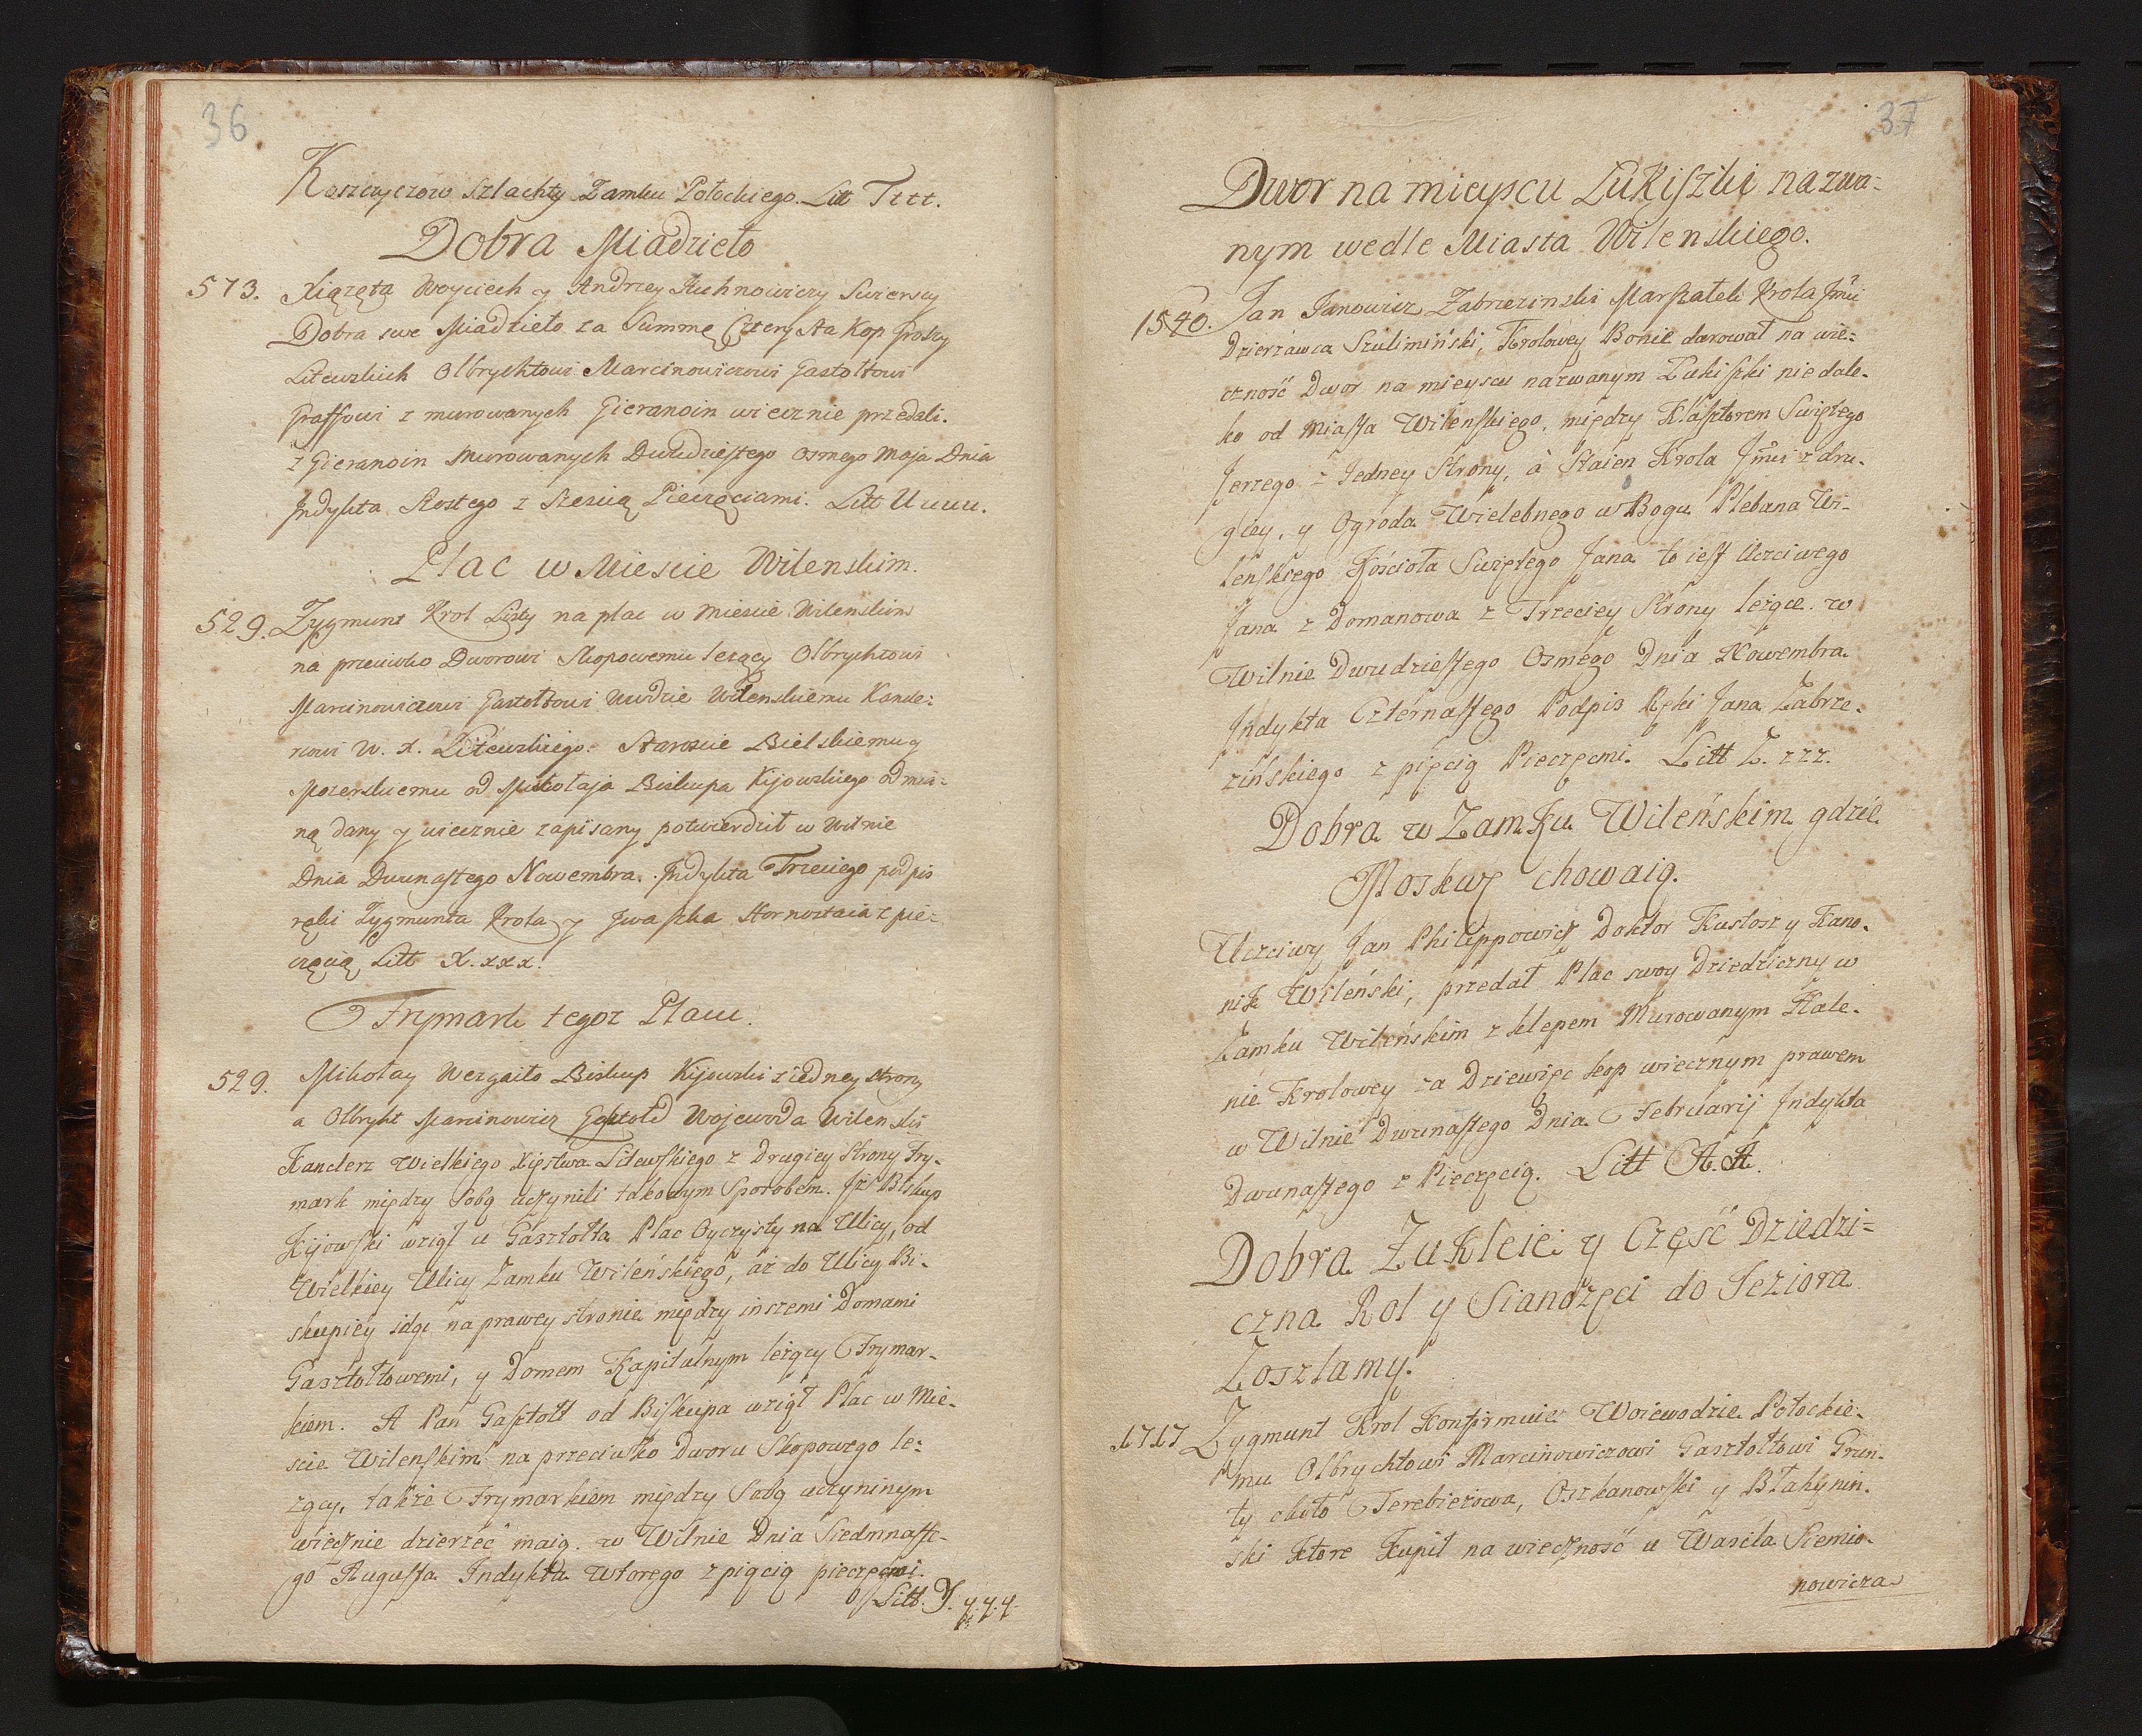 36
Koszczyczow Szlachty Zamku Połockiego. Litt Tttt.
Dobra Miadzieło
573. Xiązęta Woyciech y Andrzey Michnowiczy Swierscy
Dobra swe Miadzieło za Summę Czterysta Kop groszy
Litewskich Olbrychtowi Marcinowiczowi Gastołtowi
Graffowi z murowanych Gieranoin wiecznie przedali.
z Gieranoin Murowanych Dwudziestego osmego Maja Dnia
Indykta Szostego z Szescią Pieczęciami. Litt Uuuu.
Plac w Miescie Wilenskim.
529. Zygmunt Krol Listy na plac w miescie Wilenskim
na przeciwko Dworowi Skopowemu lezący Olbrychtowi
Marcinowiczowi Gastołtowi Wwdzie Wilenskiemu Kancle-
rzowi W. X. Litewskiego. Staroscie Bielskiemu y
Mozerskiemu od Mikołaja Biskupa Kijowskiego odmia-
ną dany y wiecznie zapisany potwierdził w Wilnie
Dnia Dwunastego Nowembra. Indykta Trzeciego podpis
ręki Zygmunta Krola y Iwaszka Hornostaia z pie-
częcią Litt X. xxx.
Frymark tegoz Placu.
529. Mikołay Wezgaiło Biskup Kijowski z iedney strony
a Olbryht Marcinowicz Gasztołd Wojewoda Wilenski
Kanclerz Wielkiego Xięstwa Litewskiego z Drugiey Strony Fry-
mark między Sobą uczynili takowym Sposobem. Iż Biskup
Kijowski wziął u Gasztołta Plac Oyczysty na Ulicy, od
Wielkiey Ulicy Zamku Wileńskiego, aż do Ulicy Bi-
skupiey idąc na prawey stronie między inszemi Domami
Gasztołtowemi, y Domem Kapitulnym leżący Frymar-
kiem. A Pan Gasztołt od Biskupa wziął Plac w Mie-
scie Wilenskim na przeciwko Dworu Skopowego le-
zący, także Frymarkiem między Sobą uczyninym
wiecznie dzierżeć maią. w Wilnie Dnia Siedmnaste-
go Augusta Indykta wtorego z pięcią pieczęćmi.
Litt. Y. y.y.y.
37
Dwor na mieyscu Lukiszki nazwa-
nym wedle Miasta Wilenskiego.
1540. Jan Janowicz Zabrzezinski Marszałek Krola Jmci
Dzierżawca Szulimiński, Krolowey Bonie darował na wie-
czność Dwor na mieyscu nazwanym Lukiszki niedale-
ko od Miasta Wilenskiego, między Klasztorem Swiętego
Jerzego z Jedney Strony, à Staien Krola Jmci z dru-
giey, y Ogroda Wielebnego w Bogu Plebana Wi-
lenskiego Kościoła Swiętego Jana to iest Uczciwego
Jana z Domanowa z Trzeciey Strony leżące. w
Wilnie Dwudziestego Osmego Dnia Nowembra
Indykta Czternastego Podpis Ręki Jana Zabrze-
zińskiego z pięcią Pieczęćmi. Litt Z. zzz.
Dobra w Zamku Wileńskim gdzie
Moskwę chowaią.
Uczciwy Jan Philippowicz Doktor Kustosz y Kano-
nik Wileński, przedał Plac swoy Dziedziczny w
Zamku Wileńskim z sklepem Murowanym Hale-
nie Krolowey za Dziewięć kop wiecznym prawem
w Wilnie Dwunastego Dnia Februarij Indykta
Dwunastego z Pieczęcią. Litt A. A.
Dobra Zukleie y Część Dziedzi-
czna Rol y Sianożęci do Jeziora
Zoszlamy.
1717 Zygmunt Krol Konfirmuie Woiewodzie Połockie-
mu Olbrychtowi Marcinowiczowi Gasztołtowi Grun-
ty około Terebieżowa, Oszkanowski y Błahynin-
ski ktore Kupił na wieczność u Wasila Siemio-
nowicza